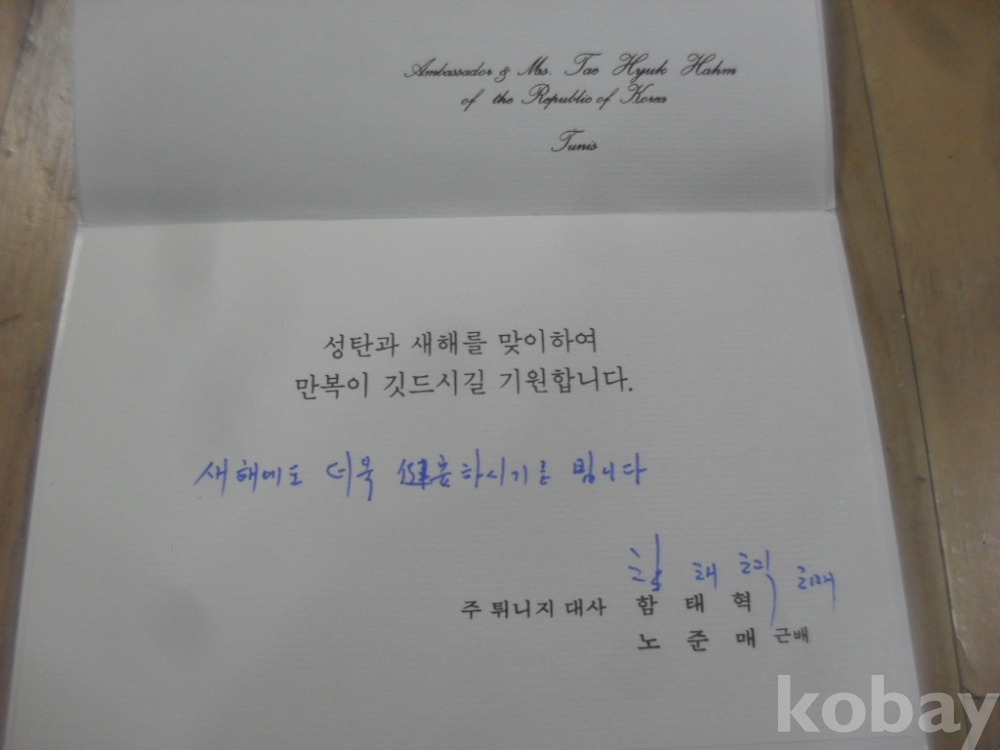 Ambassador & Mrs. Tae Hyuk Hahm
of the Republic of Korea
Tunis
성탄과 새해를 맞이하여
만복이 깃드시길 기원합니다.
새해에도 더욱 健安하시기를 빕니다
함 태 혁
주 튀니지 대사 함 태 혁
노 준 매 근배
kobay